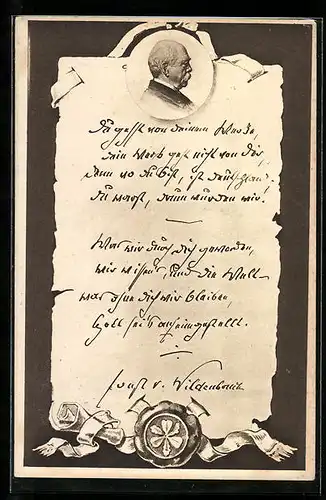 Du gehst von deinem Werke,
dein Werk geht nicht von dir,
denn wo du bist, ist Deutschland
du warst, drum wurden wir!
Was wir durch dich geworden,
wir wissen's und die Welt
was ohne dich wir bleiben,
Gott sei's anheimgestellt.
Ernst v. Wildenbruch